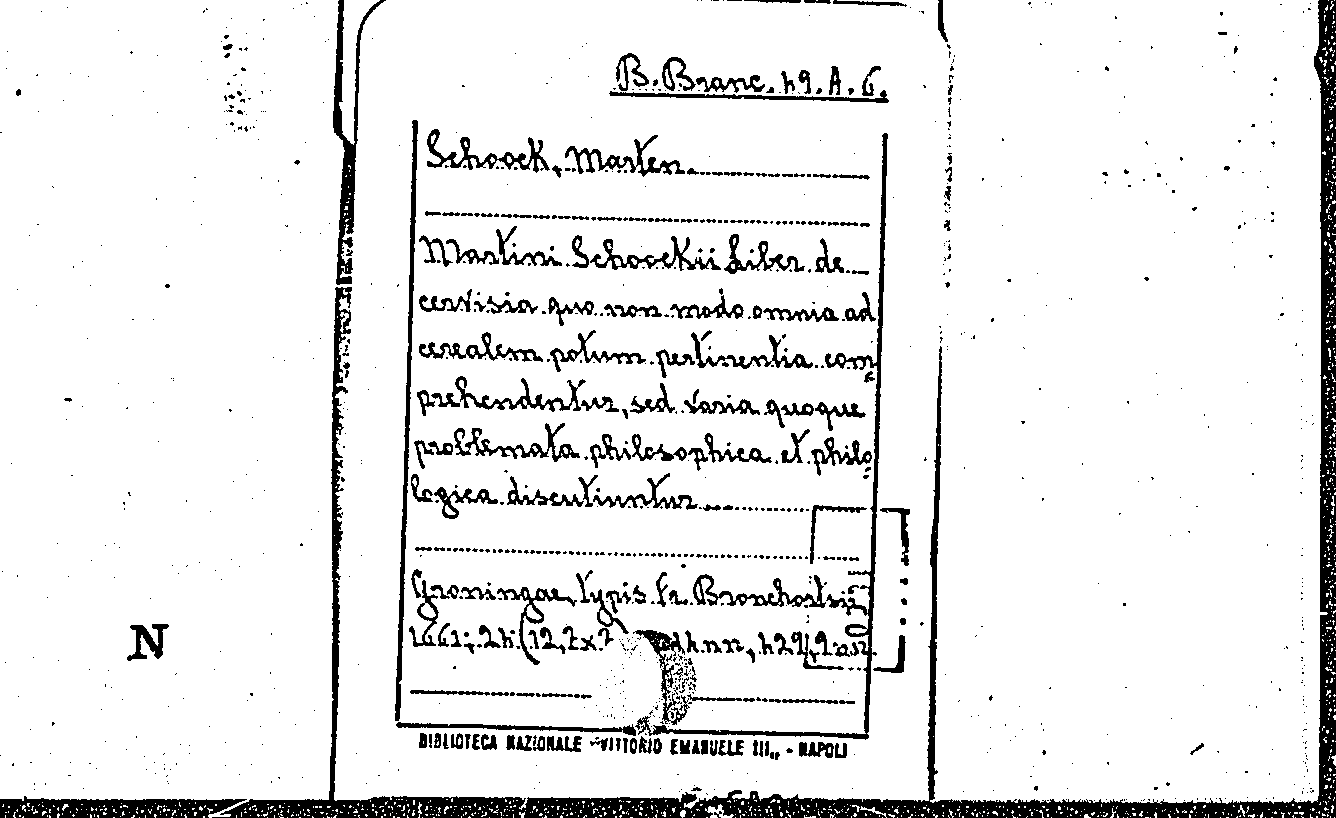 B. Branc. 49. A. 6.
Schoock, Marten.
Martini Schoockii Liber de
cervisia quo non modo omnia ad
cerealem potum pertinentia com=
prehendentur, sed varia quoque
problemata philosophica et philo=
logica discutiuntur ...
Groningae, typis Fr. Bronchorstii
1661; 24 (12,7x7
N
BIBLIOTECA NAZIONALE "VITTORIO EMANUELE III„ - NAPOLI